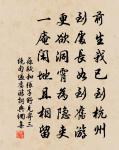 前生我已到杭州
到處長如到舊遊
更欲洞霄為隱吏
一庵閑地且相留
蘇軾和張子野見寄三
絕句過舊遊詞典網書